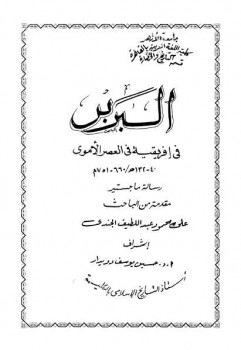 جامعة الأزهر
كلية اللغة العربية بالقاهرة
قسم التاريخ والحضارة
البربر
فى إفريقية فى العصر الأموى
٤٠-١٣٢هـ/٦٦٠-٧٥١م
رسالة ماجستير
مقدمة من الباحث
محمود عبد اللطيف الجندى
إشراف
أ.د. حسين يوسف دويدار
أستاذ التاريخ الإسلامى بالكلية